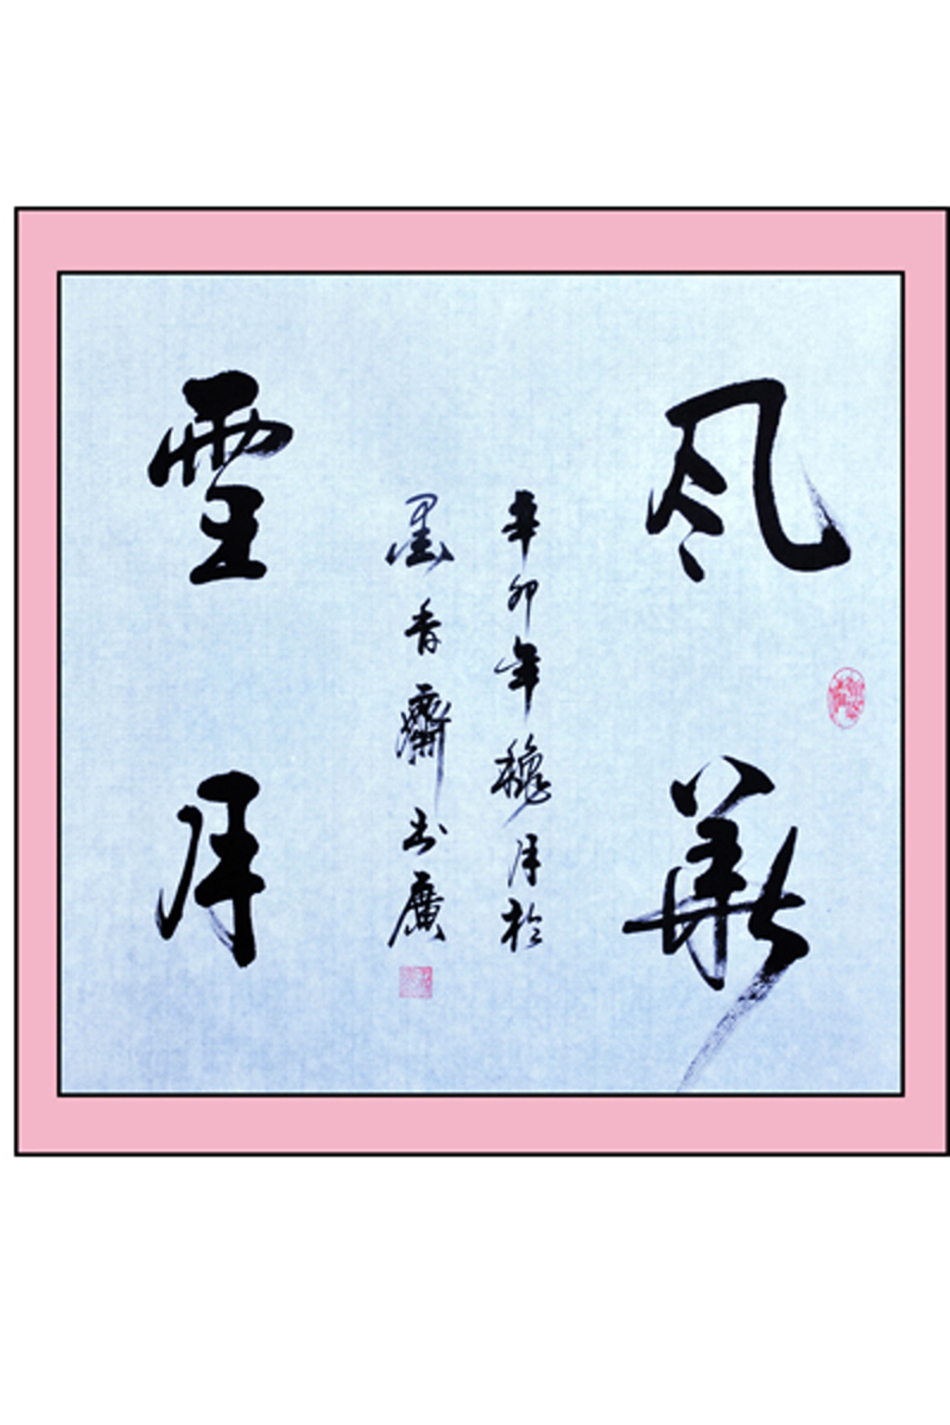 風華
辛卯年穐月於
墨香齋廣
雪月